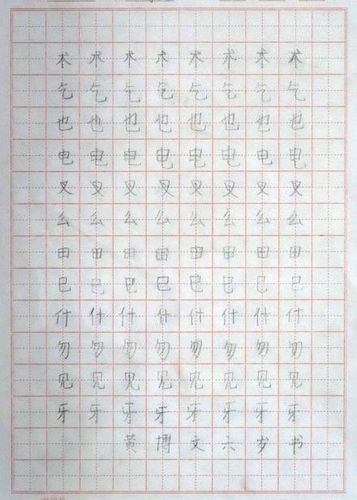 术术术术术术术术
乞乞乞乞乞乞乞乞
也也也也也也也也
电电电电电电电电
叉叉叉叉叉叉叉叉
么么么么么么么么
田田田田田田田田
巳巳巳巳巳巳巳巳
什什什什什什什什
勿勿勿勿勿勿勿勿
见见见见见见见见
牙牙牙牙牙牙牙牙
黄博文六岁书